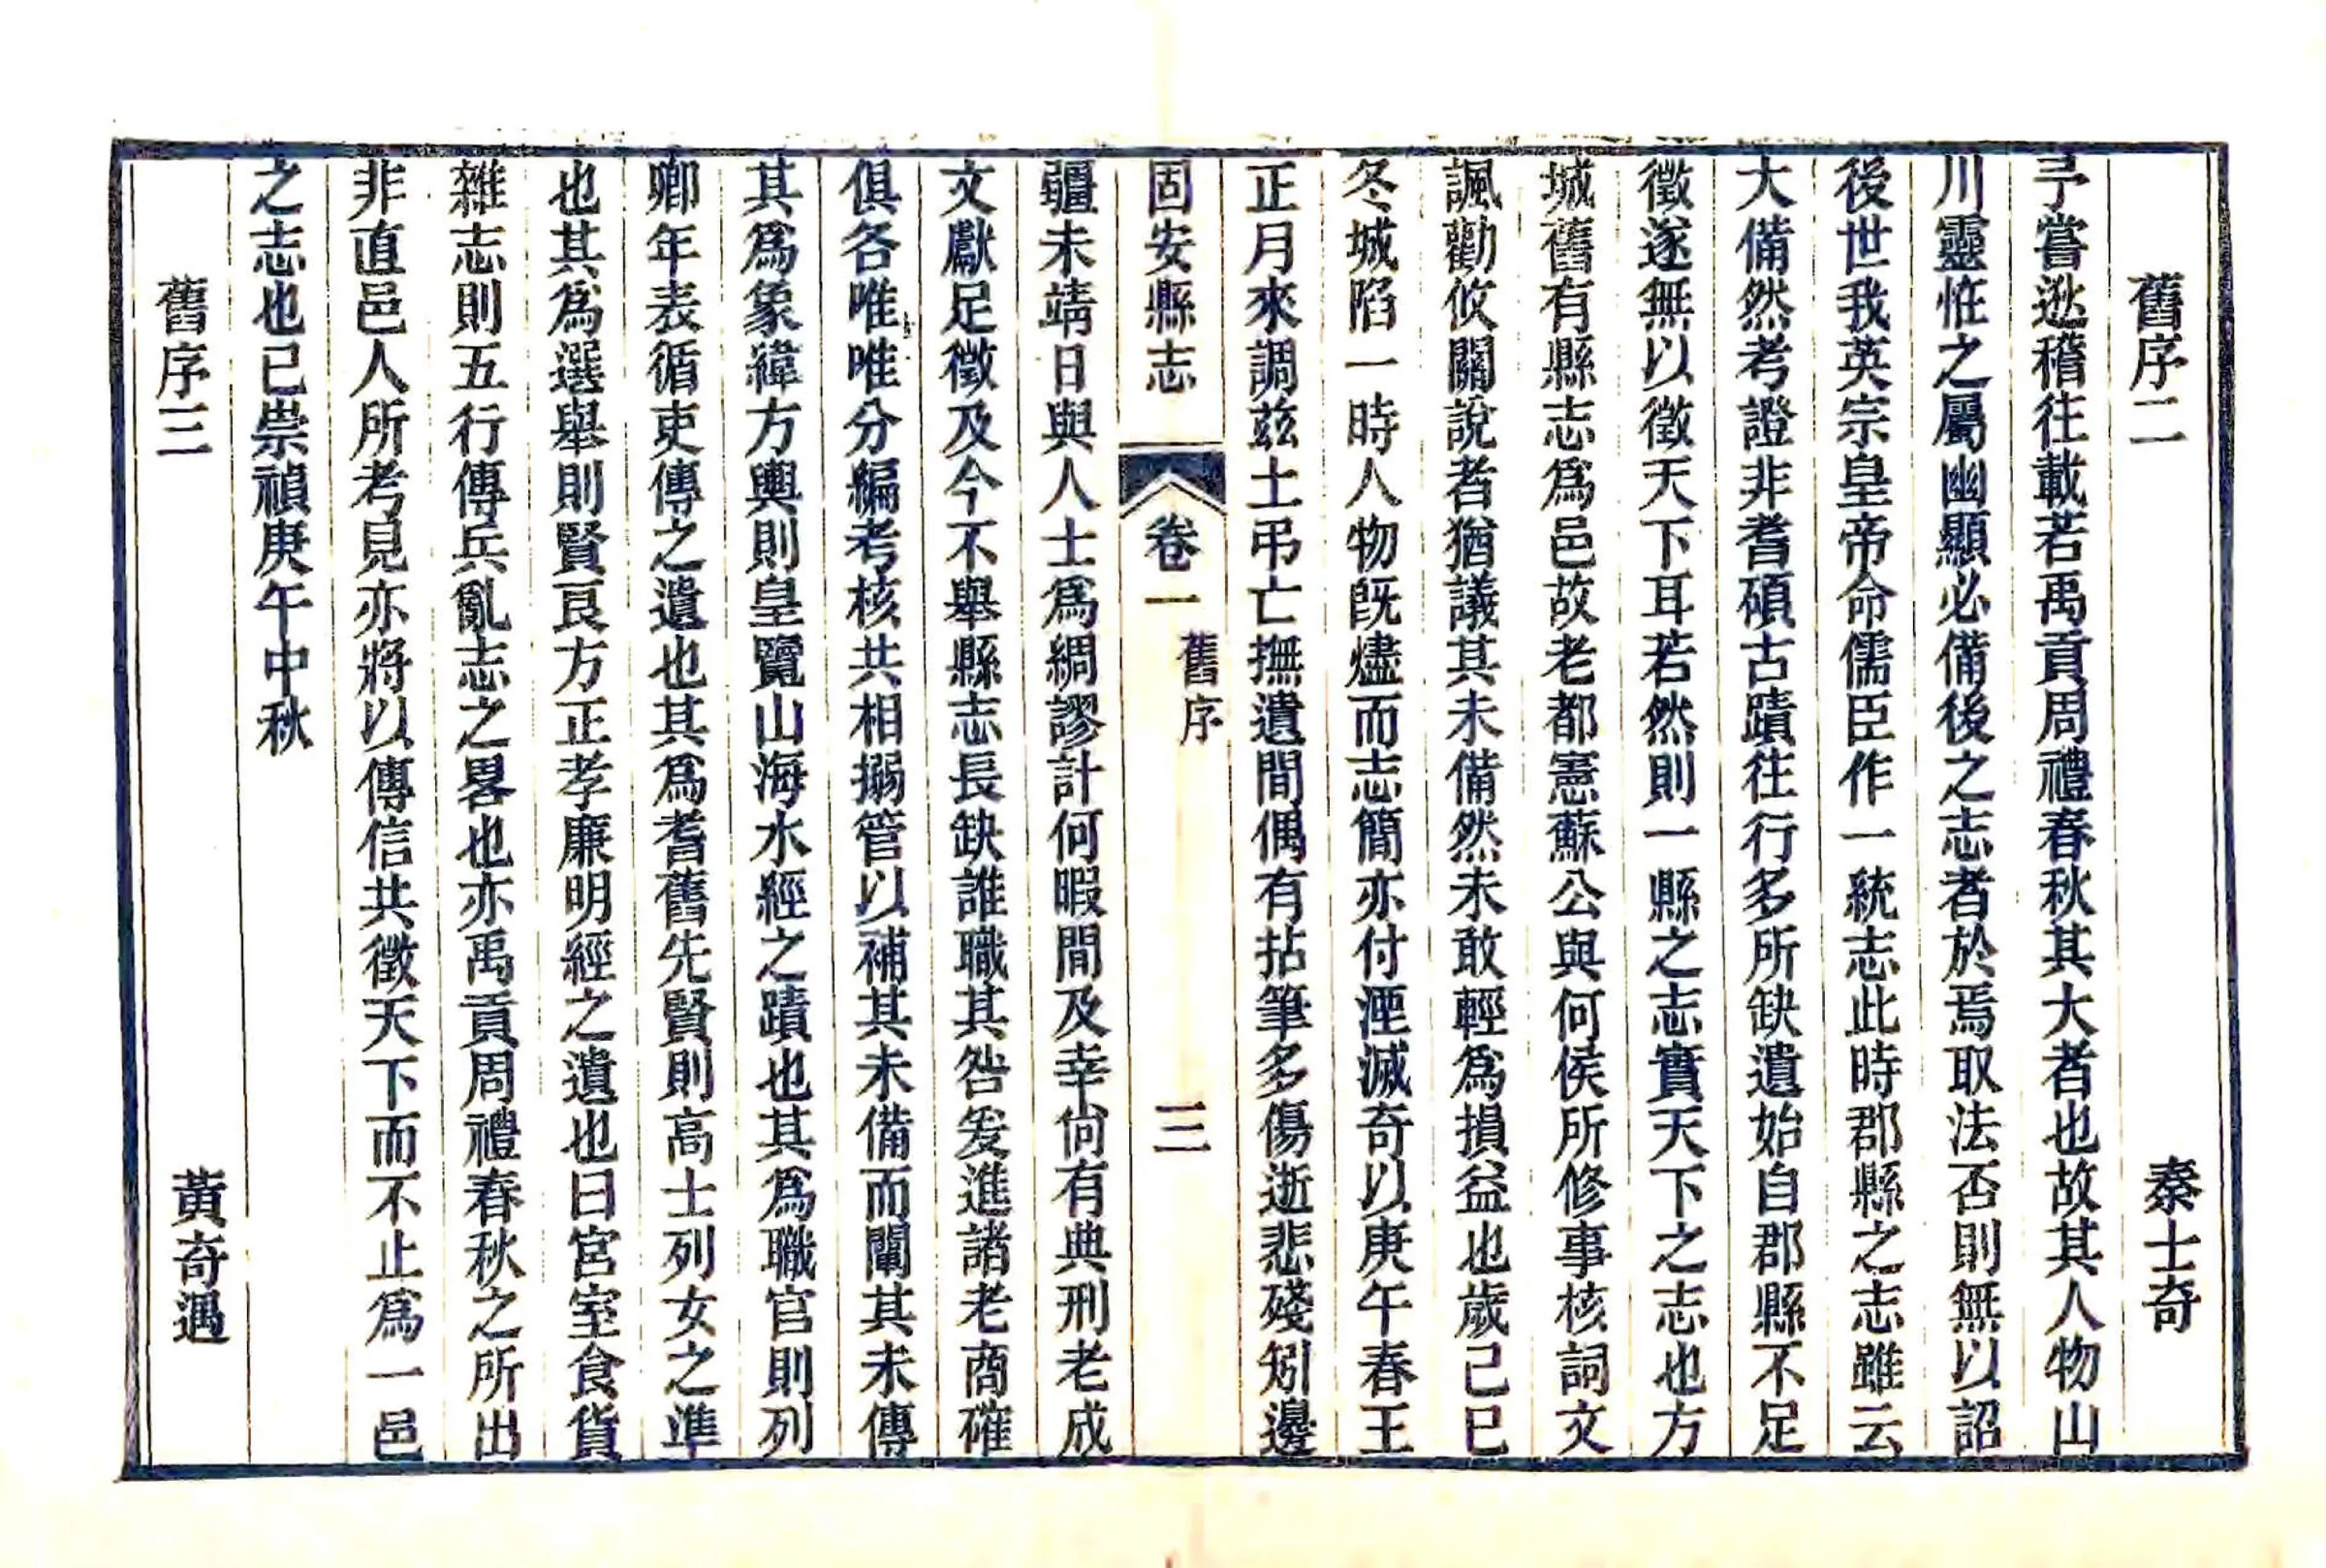 舊序二 秦士奇
予嘗逖稽往載若禹貢周禮春秋其大者也故其人物山
川靈恠之屬幽顯必備後之志者於焉取法否則無以詔
後世我英宗皇帝命儒臣作一統志此時郡縣之志雖云
大備然考證非耆碩古蹟往行多所缺遺始自郡縣不足
徵遂無以徵天下耳若然則一縣之志實天下之志也方
城舊有縣志爲邑故老都憲蘇公與何侯所修事核詞文
諷勸攸關說者猶議其未備然未敢輕爲損益也歲己巳
冬城陷一時人物旣燼而志簡亦付湮滅奇以庚午春王
正月來調茲土弔亡撫遺間偶有拈筆多傷逝悲殘矧邊
固安縣志 卷一 舊序 三
疆未靖日與人士爲綢謬計何暇間及幸尙有典刑老成
文獻足徵及今不舉縣志長缺誰職其咎爰進諸老商確
俱各唯唯分編考核共相搦管以補其未備而闡其未傳
其爲象緯方輿則皇覽山海水經之蹟也其爲職官則列
卿年表循吏傳之遺也其爲耆舊先賢則高士列女之準
也其爲選舉則賢良方正孝廉明經之遺也曰宮室食貨
雜志則五行傳兵亂志之畧也亦禹貢周禮春秋之所出
非直邑人所考見亦將以傳信共徵天下而不止爲一邑
之志也已崇禎庚午中秋
舊序三 黃奇遇